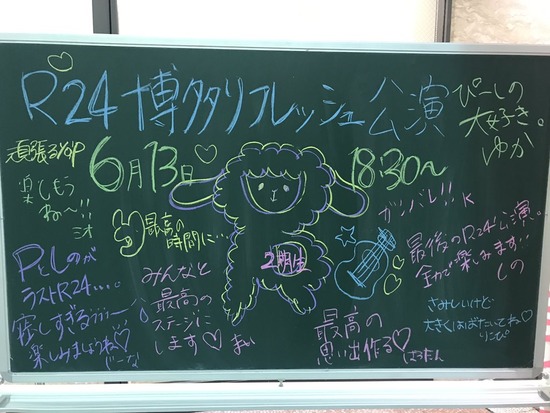 R24 博多リフレッシュ公演
ぴーしの
大好き。
ゆか
頑張るYOP
6月13日
18:30〜
楽しもう
ね〜!!
ミオ
最高の
時間に…
ガンバレ!! K
2期生
最後のR24公演。
全力で楽しみます…
しの
Pとしのが
ラストR24.....
寂しすぎるぅぅー
楽しみましょうね♡
みんなと
最高の
ステージに
します♡
まい
最高の
思い出作る♡
さみしいけど
大きくはばたいてね♡
りこぴ